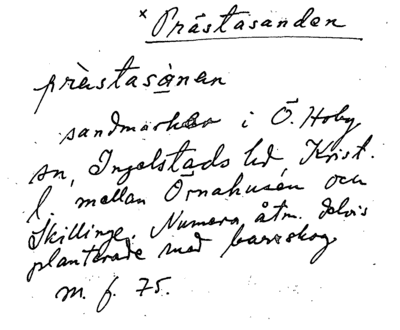 × Prästasanden
prästasànen
sandmarker i Ö. Hoby
sn, Ingelstads hd, Krist.
l. mellan Örnahusen och
Skillinge. Numera åtm. delvis
planterade med barrskog
m. f. 75.